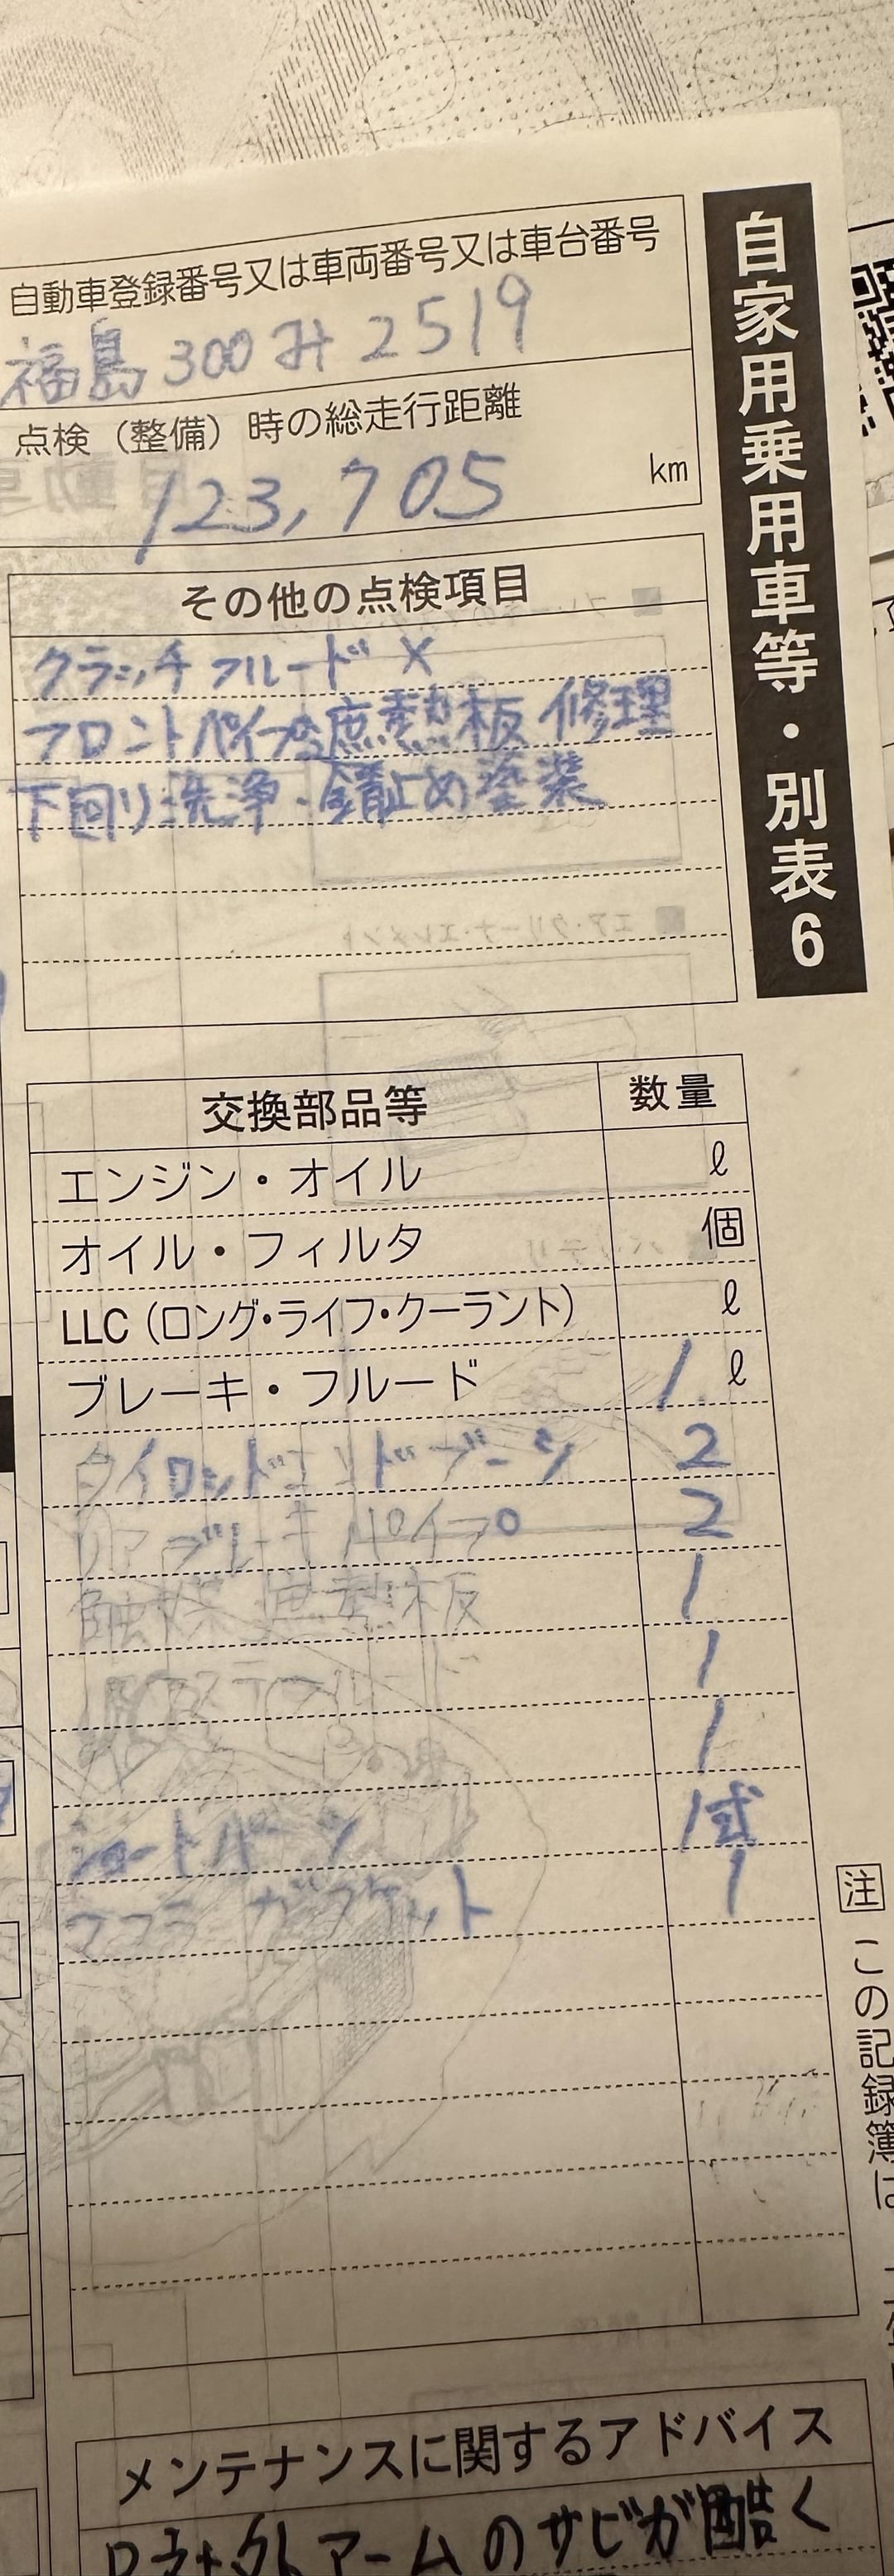 自動車登録番号又は車両番号又は車台番号
福島 300 み 2519
点検（整備）時の総走行距離
123,705 km
自家用乗用車等・別表6
その他の点検項目
クラッチフルード ×
フロントパイプ 遮熱板 修理
下回り洗浄・錆止め塗装
交換部品等 数量
エンジン・オイル ℓ
オイル・フィルタ 個
LLC（ロング・ライフ・クーラント） ℓ
ブレーキ・フルード 1 ℓ
タイロッドエンドブーツ 2
リア ブレーキ パイプ 2
触媒 遮熱板 1
1
1
ショートパーツ 1式
マフラーガスケット 1
注 この記録簿は
メンテナンスに関するアドバイス
アームのサビが酷く